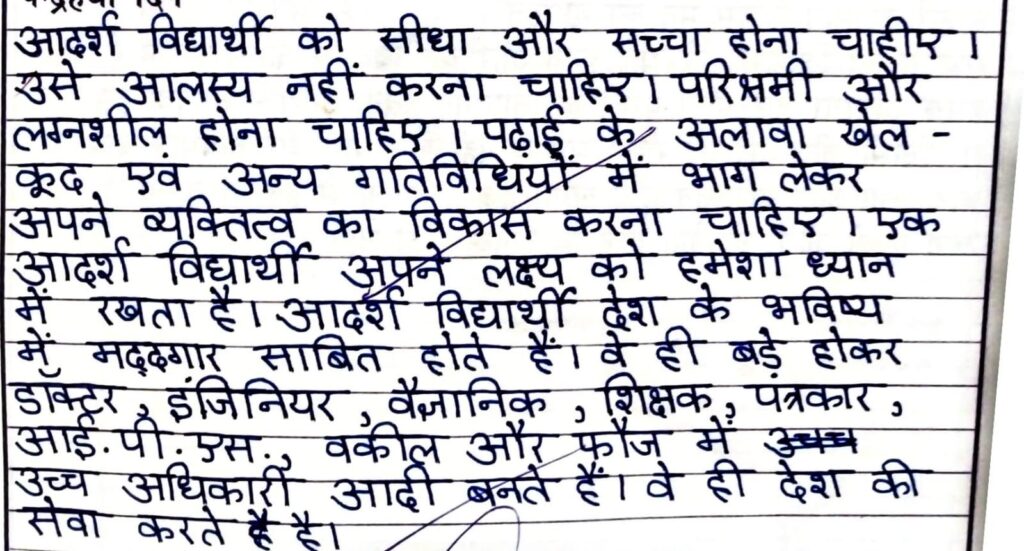 आदर्श विद्यार्थी को सीधा और सच्चा होना चाहीए।
उसे आलस्य नहीं करना चाहिए। परिश्रमी और
लग्नशील होना चाहिए। पढ़ाई के अलावा खेल -
कूद एवं अन्य गतिविधियों में भाग लेकर
अपने व्यक्तित्व का विकास करना चाहिए। एक
आदर्श विद्यार्थी अपने लक्ष्य को हमेशा ध्यान
में रखता है। आदर्श विद्यार्थी देश के भविष्य
में मद्दगार साबित होते हैं। वे ही बड़े होकर
डाक्टर, इंजिनियर, वैज्ञानिक, शिक्षक, पत्रकार,
आई.पी.एस., वकील और फौज में
उच्च अधिकारी आदी बनते हैं। वे ही देश की
सेवा करते है है।